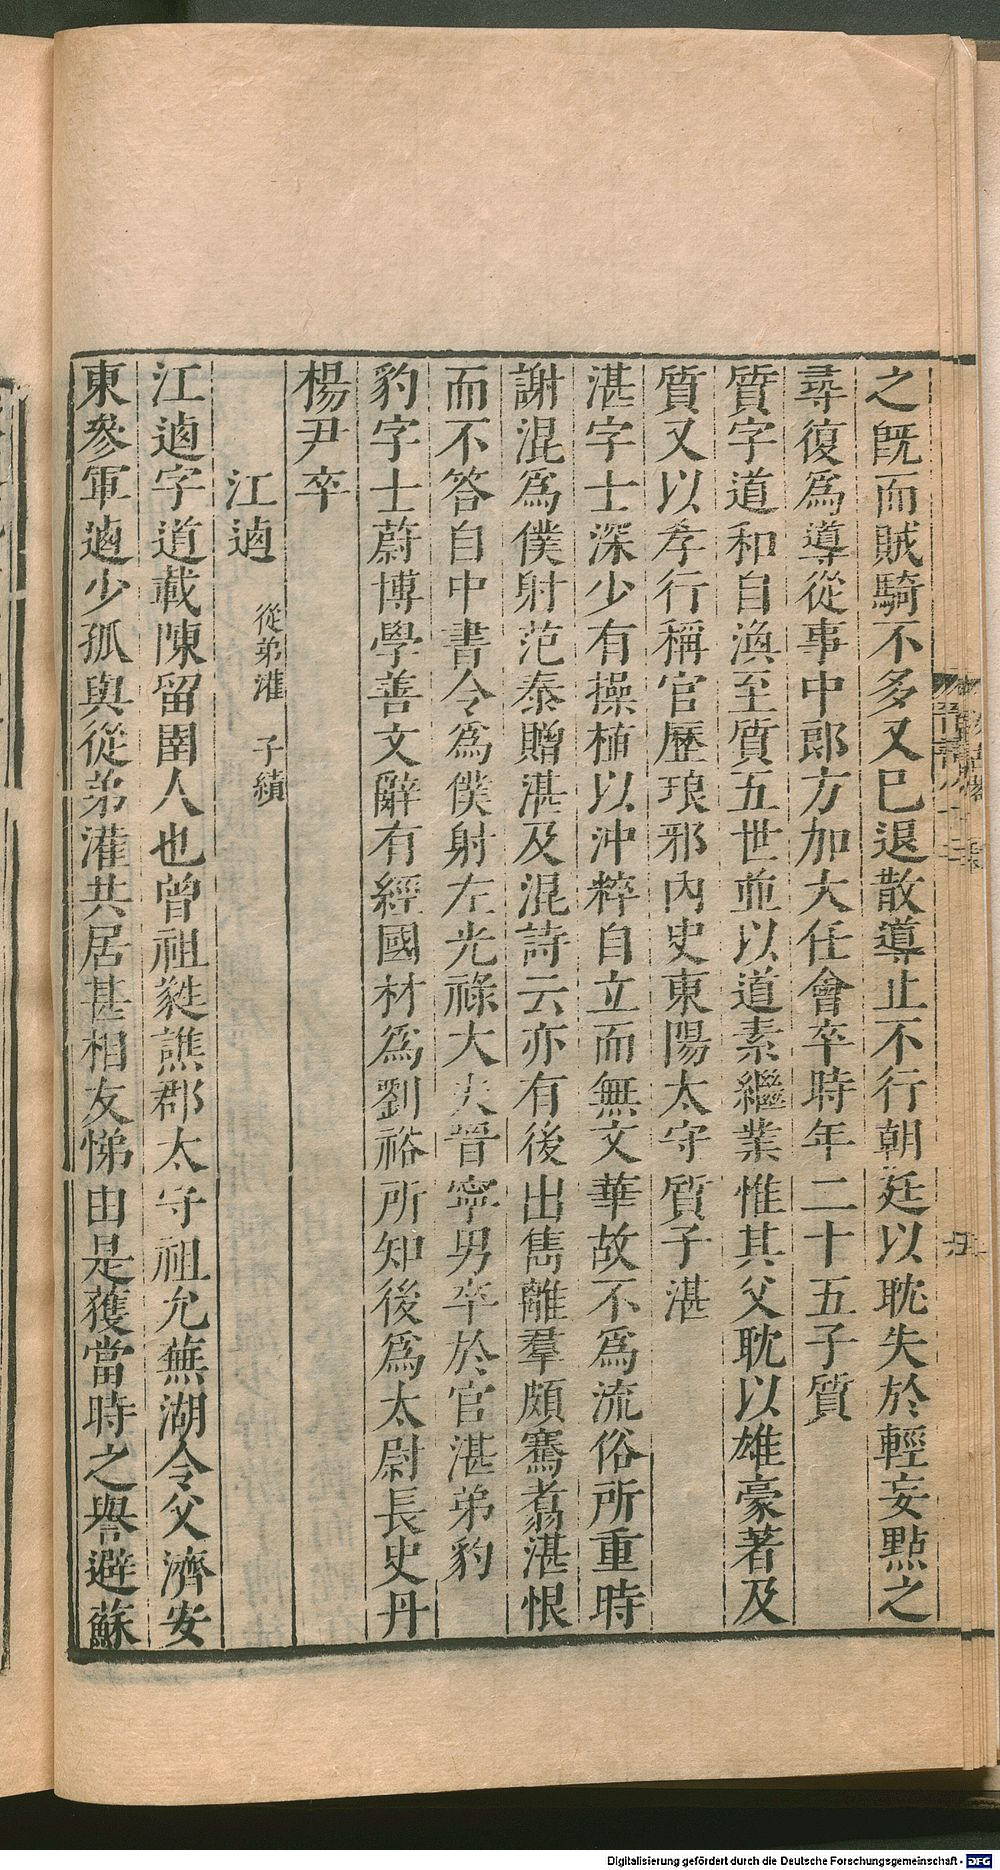 之旣而賊騎不多又巳退散導止不行朝廷以耽失於輕妄黜之
尋復爲導從事中郎方加大任會卒時年二十五子質
質字道和自渙至質五世並以道素繼業惟其父耽以雄豪著及
質又以孝行稱官歷琅邪內史東陽太守質子湛
湛字士深少有操植以沖粹自立而無文華故不爲流俗所重時
謝混爲僕射范泰贈湛及混詩云亦有後出雋離羣頗騫翥湛恨
而不答自中書令爲僕射左光祿大夫晉寧男卒於官湛弟豹
豹字士蔚博學善文辭有經國材爲劉裕所知後爲太尉長史丹
楊尹卒
江逌 從弟灌 子績
江逌字道載陳留圉人也曾祖蕤譙郡太守祖允蕪湖令父濟安
東參軍逌少孤與從弟灌共居甚相友悌由是獲當時之譽避蘇
Digitalisierung gefördert durch die Deutsche Forschungsgemeinschaft - DFG